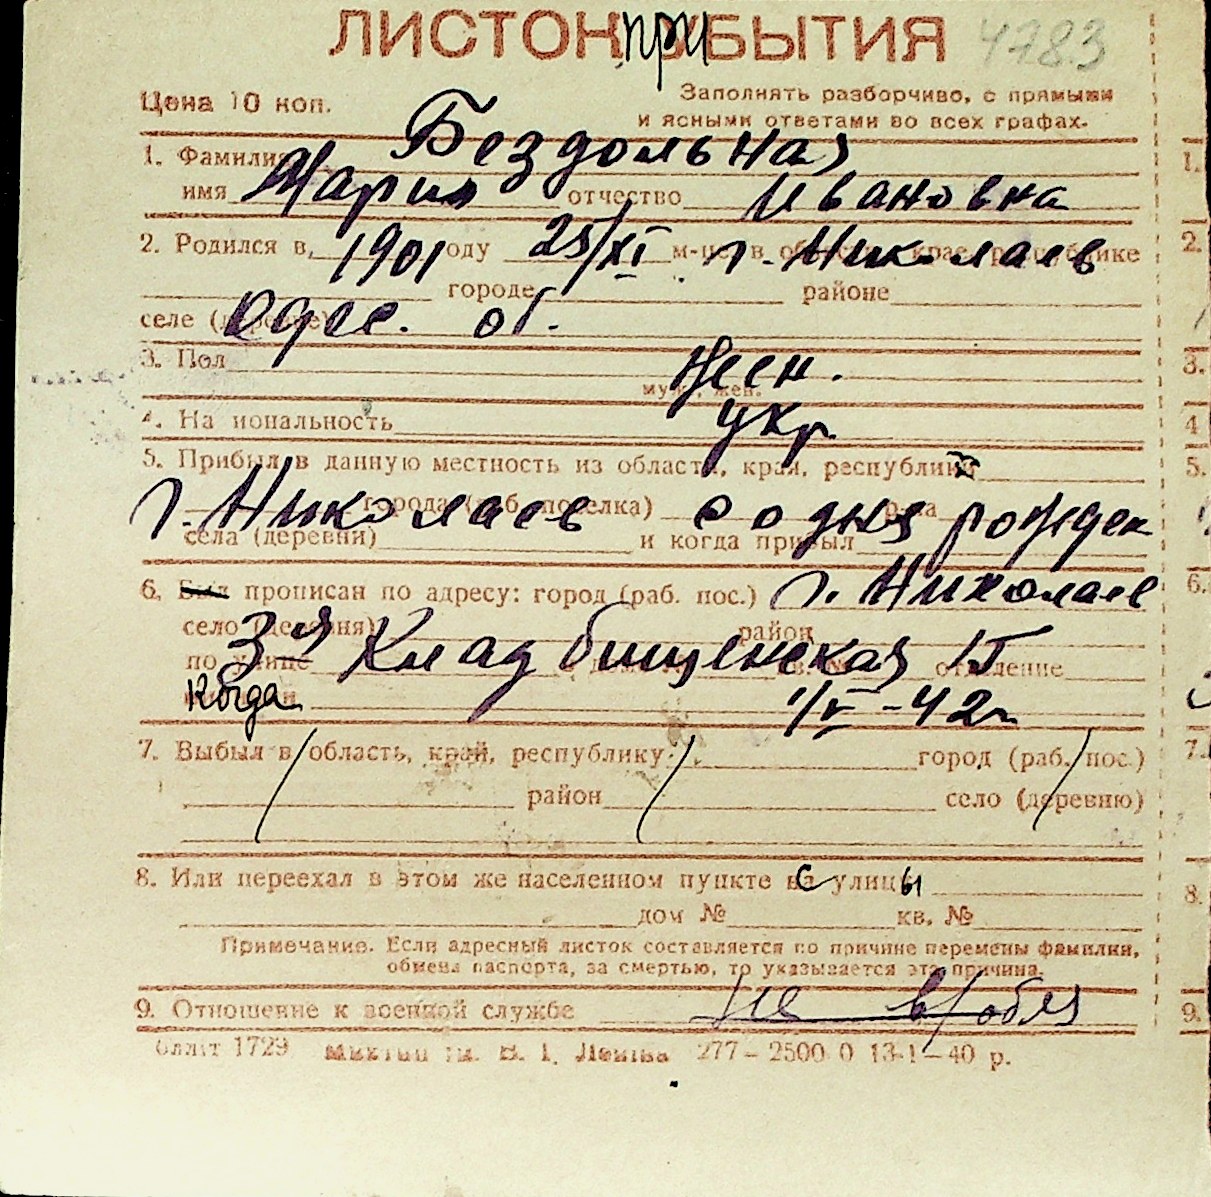 ЛИСТОК прибытия 4783
Цена 10 коп. Заполнять разборчиво, с прямыми
и ясными ответами во всех графах.
1. Фамилия Бездольная
имя Мария отчество Ивановна
2. Родился в 1901 году 25/XI м-це в области, крае, республике г. Николаев
городе районе
селе (деревне) Одес. об.
3. Пол жен.
муж., жен.
4. Национальность укр.
5. Прибыл в данную местность из области, края, республики
г. Николаев города (раб. поселка) со дня рожден
села (деревни) и когда прибыл
6. Был прописан по адресу: город (раб. пос.) г. Николаев
село (деревня) район
по улице 3я Кладбищенская отделение
Когда 1/V-42г
7. Выбыл в область, край, республику город (раб. пос.)
район село (деревню)
8. Или переехал в этом же населенном пункте с улицы
дом № кв. №
Примечание. Если адресный листок составляется по причине перемены фамилии,
обмена паспорта, за смертью, то указывается эта причина.
9. Отношение к военной службе не в/обяз
1729 им. В. І. Леніна 277–2500 0 13-I–40 р.
1.
2.
3.
4
5.
6.
7.
8.
9.